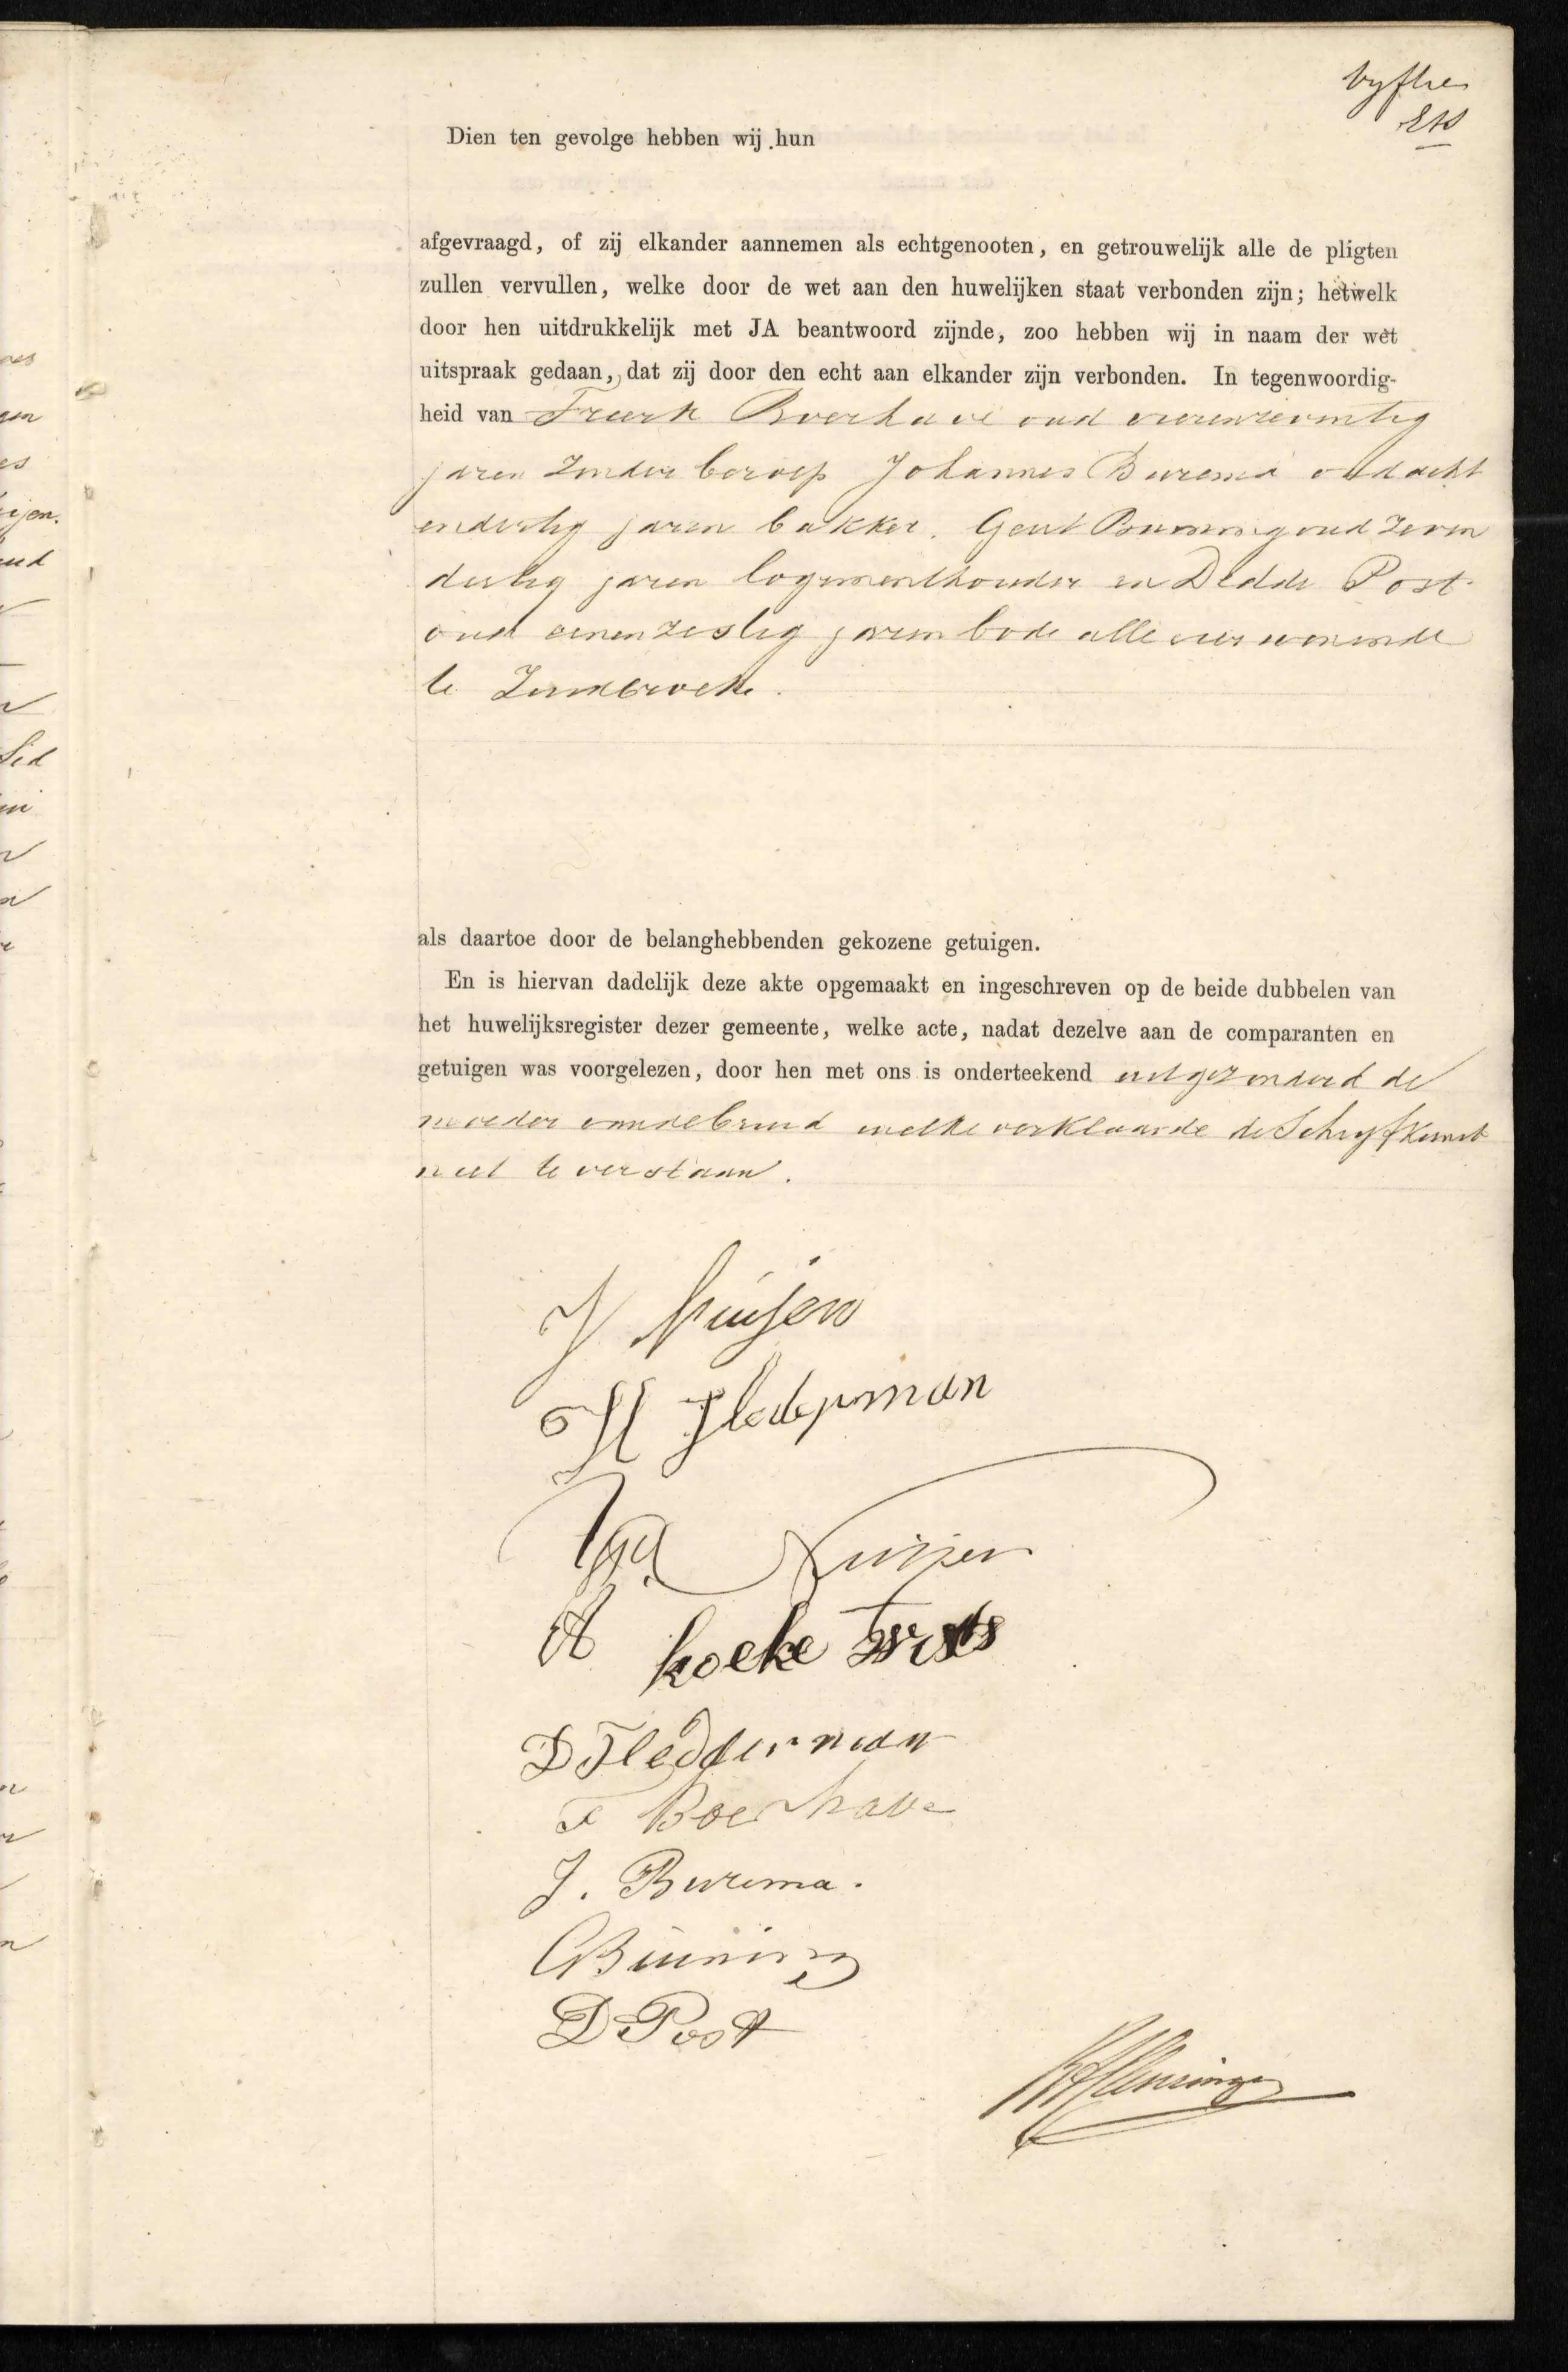 vyftien
Dien ten gevolge hebben wij hun
afgevraagd, of zij elkander aannemen als echtgenooten, en getrouwelijk alle de pligten
zullen vervullen, welke door de wet aan den huwelijken staat verbonden zijn; hetwelk
door hen uitdrukkelijk met JA beantwoord zijnde, zoo hebben wij in naam der wet
uitspraak gedaan, dat zij door den echt aan elkander zijn verbonden. In tegenwoordig-
heid van Freerk Boerhave oud vierenzeventig
jaren zonder beroep Johannes Burema oud acht
endertig jaren bakker. Geert Buining oud zeven
dertig jaren logementhouder en Dedde Post
oud eenenzestig jaren bode alle vier wonende
te Zuidbroek.
als daartoe door de belanghebbenden gekozene getuigen.
En is hiervan dadelijk deze akte opgemaakt en ingeschreven op de beide dubbelen van
het huwelijksregister dezer gemeente, welke acte, nadat dezelve aan de comparanten en
getuigen was voorgelezen, door hen met ons is onderteekend uitgezonderd de
moeder van de bruid welke verklaarde de Schryfkunst
niet te verstaan.
J Nuijen
H Fledderman
Nuijen
koeke
D Fledderman
F Boerhave
J. Burema.
G Buining
D Post